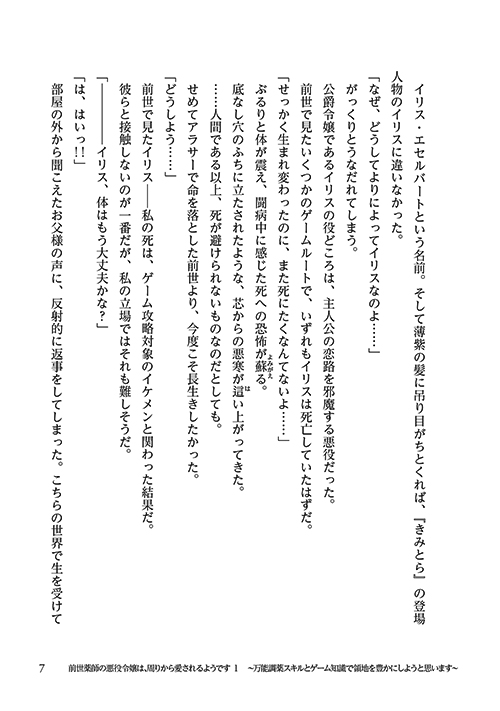 イリス・エセルバートという名前。そして薄紫の髪に吊り目がちとくれば、『きみとら』の登場
人物のイリスに違いなかった。
「なぜ、どうしてよりによってイリスなのよ……」
がっくりとうなだれてしまう。
公爵令嬢であるイリスの役どころは、主人公の恋路を邪魔する悪役だった。
前世で見たいくつかのゲームルートで、いずれもイリスは死亡していたはずだ。
「せっかく生まれ変わったのに、また死にたくなんてないよ……」
ぶるりと体が震え、闘病中に感じた死への恐怖が蘇る。
よみがえ
底なし穴のふちに立たされたような、芯からの悪寒が這い上がってきた。
は
……人間である以上、死が避けられないものなのだとしても。
せめてアラサーで命を落とした前世より、今度こそ長生きしたかった。
「どうしよう……」
前世で見たイリス――私の死は、ゲーム攻略対象のイケメンと関わった結果だ。
彼らと接触しないのが一番だが、私の立場ではそれも難しそうだ。
「――――イリス、体はもう大丈夫かな？」
「は、はいっ!!」
部屋の外から聞こえたお父様の声に、反射的に返事をしてしまった。こちらの世界で生を受けて
7 前世薬師の悪役令嬢は、周りから愛されるようです 1 ～万能調薬スキルとゲーム知識で領地を豊かにしようと思います～